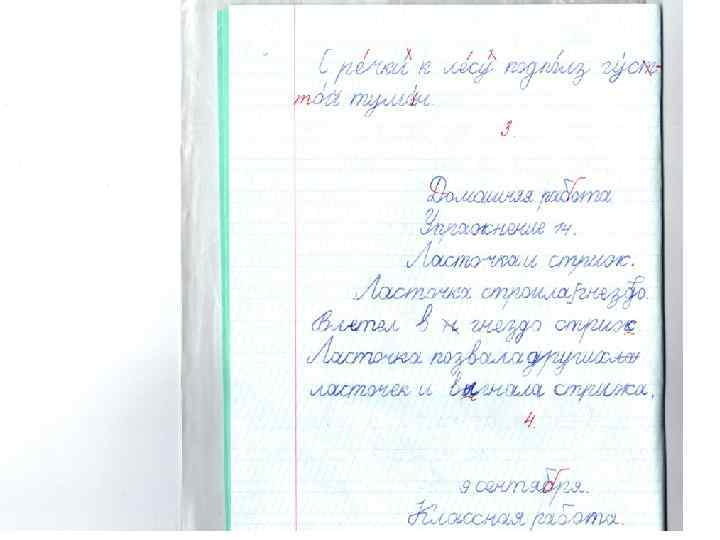 С речки к лесу подполз густ-
той туман.
3.
Домашняя работа
Упражнение 14.
Ласточка и стриж.
Ласточка строила гнездо.
Влетел в гнездо стриж
Ласточка позвала других
ласточек и выгнала стрижа.
4.
9 сентября.
Классная работа.